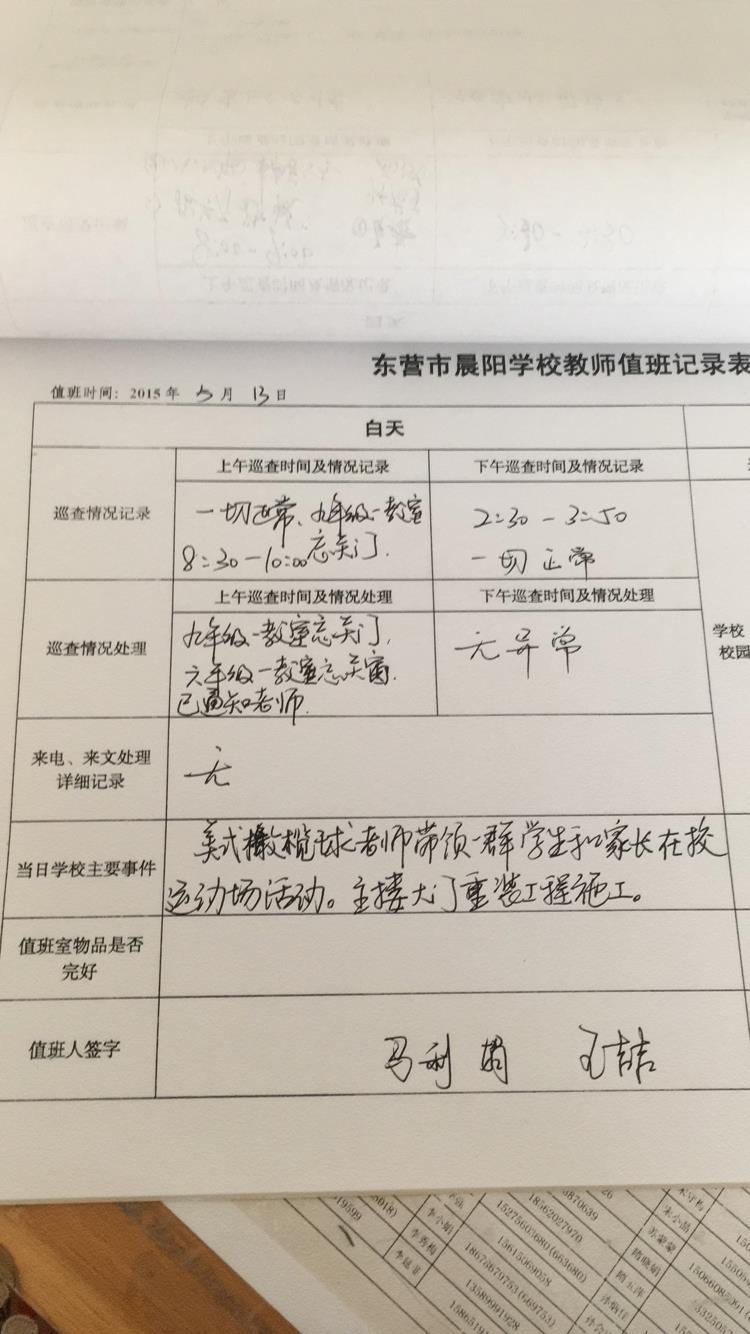 东营市晨阳学校教师值班记录表
值班时间：2015 年 5 月 13 日
白天
上午巡查时间及情况记录
下午巡查时间及情况记录
巡查情况记录
一切正常、九年级一教室
8:30-10:00 忘关门.
2:30-3:50
一切正常
上午巡查时间及情况处理
下午巡查时间及情况处理
巡查情况处理
九年级一教室忘关门,
六年级一教室忘关窗.
已通知老师.
无异常
学校
校园
来电、来文处理
详细记录
无
当日学校主要事件
美式橄榄球老师带领一群学生和家长在校
运动场活动。主楼大门重装工程施工。
值班室物品是否
完好
值班人签字
马利娟
19599
李小娟
李秀梅
李延菲
15275603680(663680)
15615069058
18675679753(669753)
13589991928
1586519
18562027970
3870639
宋守梅
宋小晶
苏蒙蒙
隋晓娟
隋玉萍